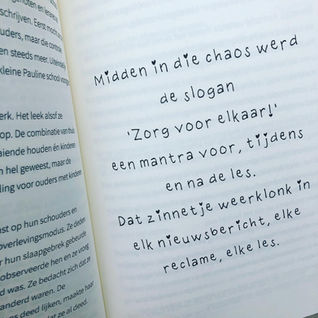 noten en lespa
schrijven. Eerst moch
ouders, maar die control
en steeds meer. Uiteindel
kleine Pauline school voorg
erk. Het leek alsof ze
op. De combinatie van thuis
aiende houden én kinderen
n hel geweest, maar de
ling voor ouders met kinderen
st op hun schouders en
overlevingsmodus. Ze deden
r hun slaapgebrek gebeurde
observeerde hen en ze vroeg
d was. Ze bedacht dat ze
anderd waren. De
s deed lijken, maakte haar
at ze al deed.
Midden in die chaos werd
de slogan
'Zorg voor elkaar!'
een mantra voor, tijdens
en na de les.
Dat zinnetje weerklonk in
elk nieuwsbericht, elke
reclame, elke les.